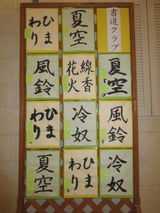 書道クラブ
夏空
ひま
わり
夏空
線香
花火
風鈴
風鈴
冷奴
ひま
わり
冷奴
ひま
わり
夏空